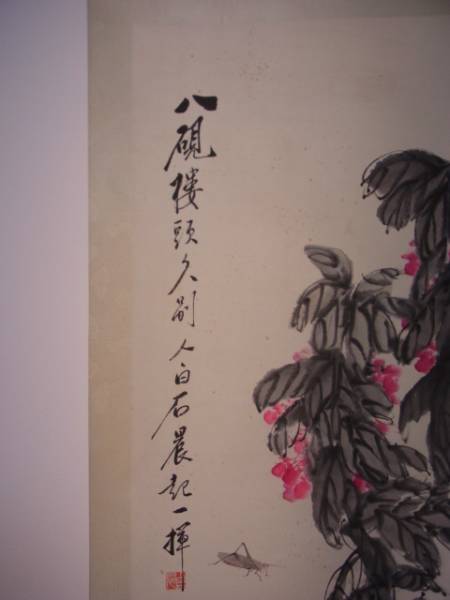 八砚楼頭久别人白石晨起一揮